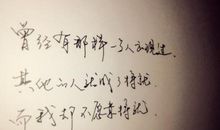 曾经有那样一个人出现过,
其他的人就成了将就,
而我却不愿意将就。